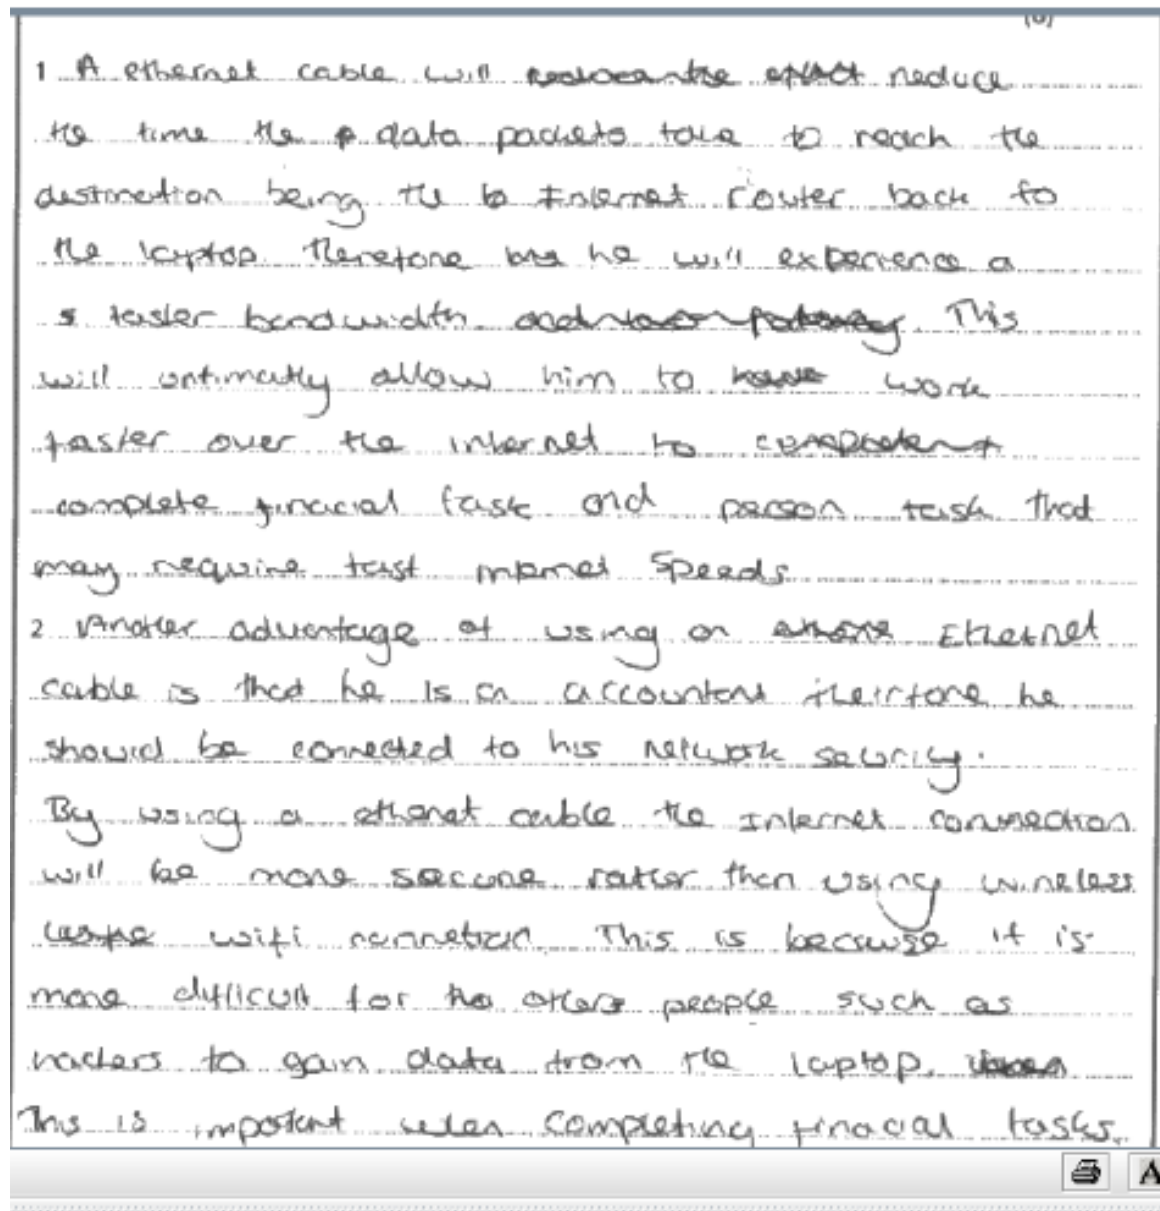 (6)
1 A ethernet cable will reduce
the time the data packets take to reach the
destination being the to Internet router back to
the laptop. Therefore he will experience a
s faster bandwidth. This
will ontimatly allow him to work
faster over the internet to
complete finacial task and person task that
may require fast internet speeds
2 Another advantage of using an Ethernet
cable is that he is an accountant theirfore he
should be connected to his network securily.
By using a ethenet cable the Internet connection
will be more secure rather then using wireless
wifi connnetion. This is because it is
more difficult for the others people such as
hackers to gain data from the laptop.
This is important when completing finacial tasks.
A